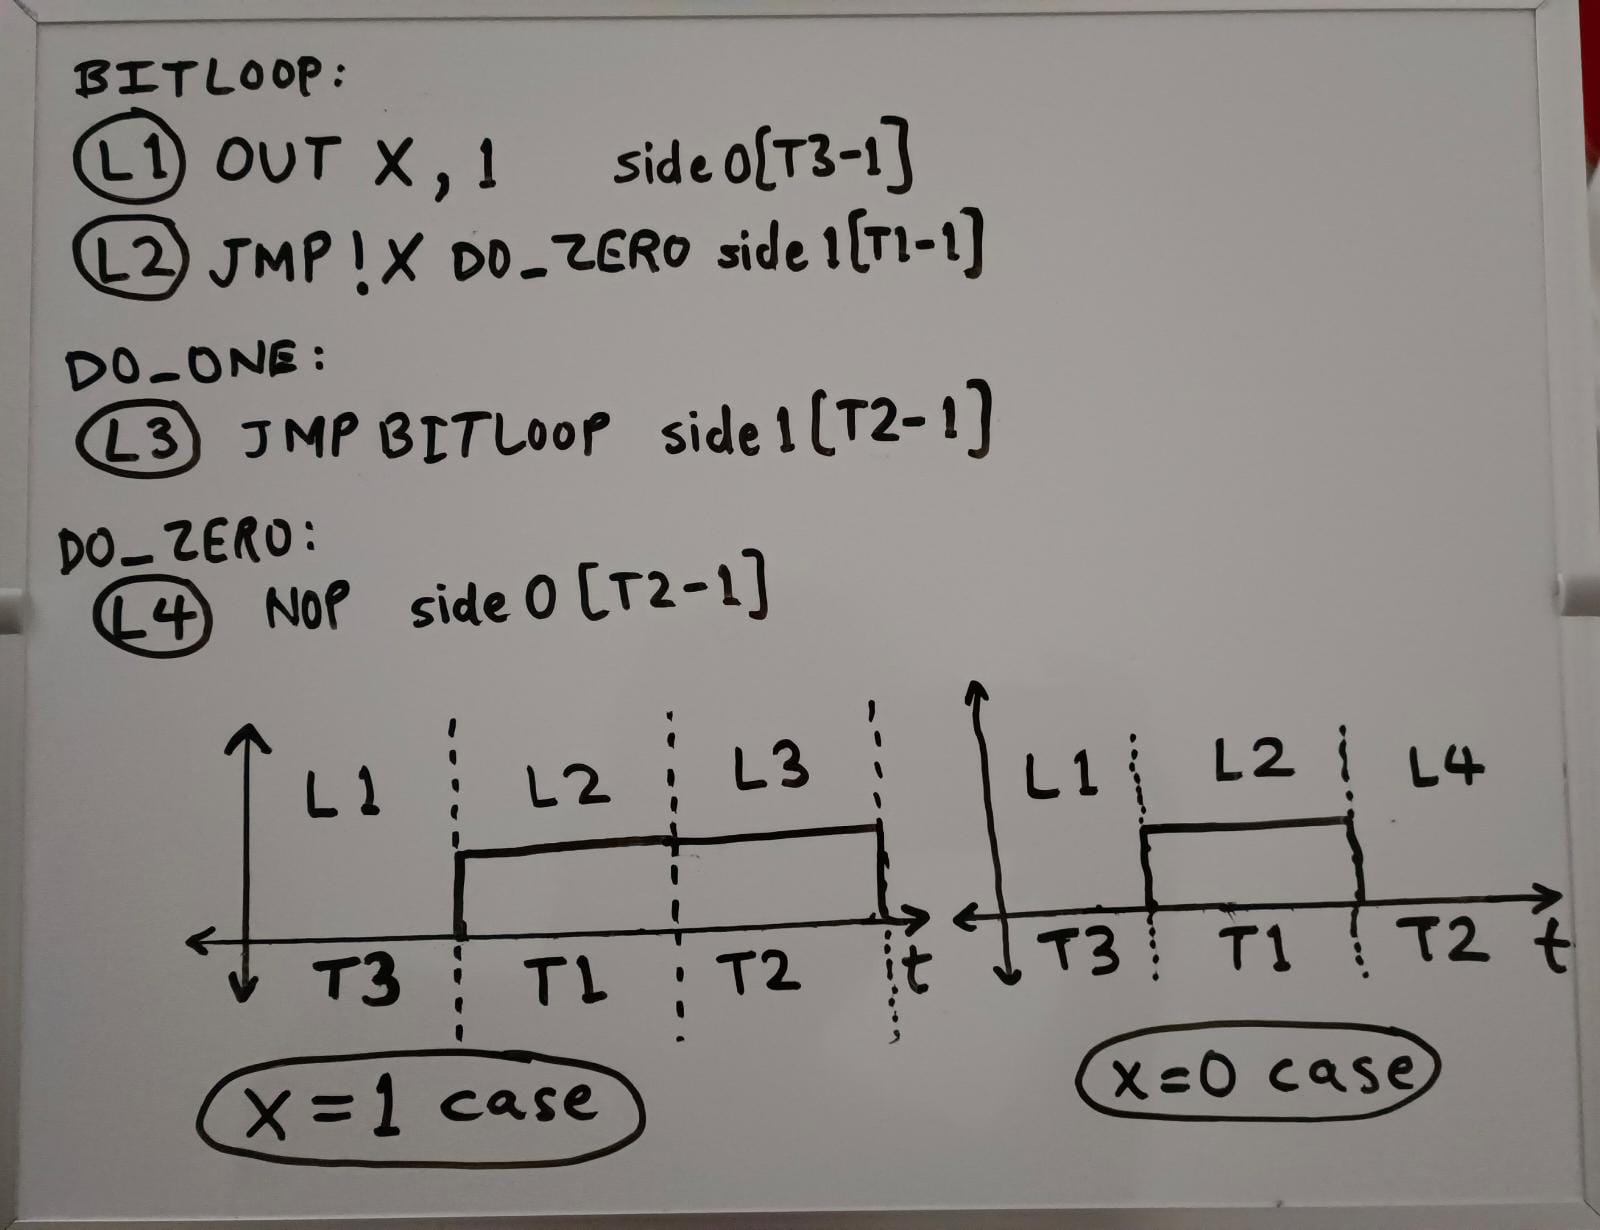 BITLOOP:
L1 OUT X, 1 side 0[T3-1]
L2 JMP !X DO_ZERO side 1[T1-1]
DO_ONE:
L3 JMP BITLOOP side 1[T2-1]
DO_ZERO:
L4 NOP side 0 [T2-1]
L1 L2 L3
T3 T1 T2 t
X=1 case
L1 L2 L4
T3 T1 T2 t
X=0 case